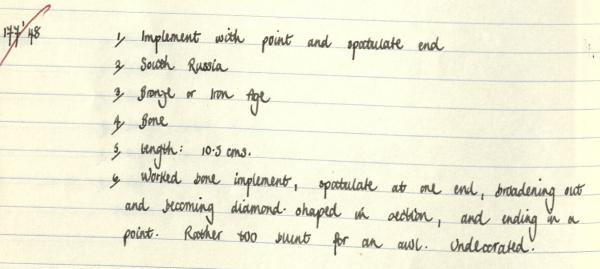 177'48
1, Implement with point and spatulate end
2, South Russia
3, Bronze or Iron Age
4, Bone
5, Length: 10.5 cms.
6, Worked bone implement, spatulate at one end, broadening out
and becoming diamond-shaped in section, and ending in a
point. Rather too blunt for an awl. Undecorated.